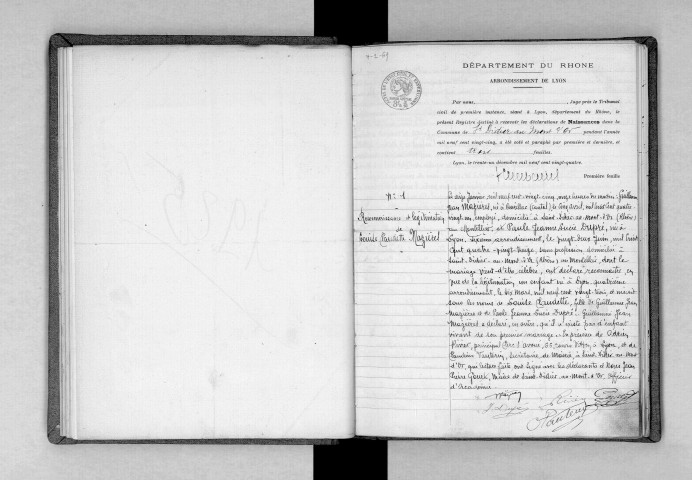 4-2-69
DÉPARTEMENT DU RHONE
ARRONDISSEMENT DE LYON
Par nous, , Juge près le Tribunal
civil de première instance, séant à Lyon, département du Rhône, le
présent Registre destiné à recevoir les déclarations de Naissances dans la
Commune de St Didier au Mont d'Or pendant l'année
mil neuf cent vingt-cinq, a été coté et paraphé par première et dernière, et
contient feuilles.
Lyon, le trente-un décembre mil neuf cent vingt-quatre.
Première feuille
n° 1
Reconnaissance et légitimation
de
Louise Claudette Mazières
Le seize Janvier mil neuf cent vingt-cinq, onze heures du matin : Guillaume
Jean Mazières, né à (Cantal) le cinq avril mil huit cent quatre
vingt un, employé, domicilié à Saint-Didier-au-Mont-d'Or (Rhône)
au Montellier, et Paule Jeanne Lucie Dupré, née à
Lyon, sixième arrondissement, le vingt-deux Juin, mil huit
cent quatre-vingt-treize, sans profession domiciliée à
Saint-Didier-au-Mont-d'Or (Rhône) au Montellier, dont le
mariage vient d'être célébré, ont déclaré reconnaître, en
vue de la légitimation, un enfant né à Lyon quatrième
arrondissement, le dix Mars, mil neuf cent vingt-trois, et inscrit
sous les noms de Louise Claudette, fille de Guillaume Jean
Mazières et de Paule Jeanne Lucie Dupré. Guillaume Jean
Mazières a déclaré, en outre, qu'il n'existe pas d'enfant
vivant de son premier mariage. En présence de
principal clerc d'avoué, 55 , à Lyon, et de
Secrétaire de Mairie, à Saint-Didier-au-Mont
d'Or, qui lecture faite ont signé avec les déclarants et Nous Jean
Maire de Saint-Didier-au-Mont-d'Or, Officier
d'Académie